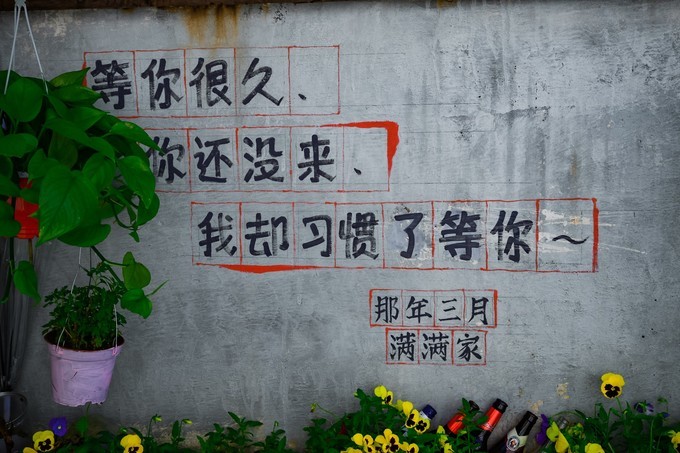 等你很久、
你还没来、
我却习惯了等你～
那年三月
满满家